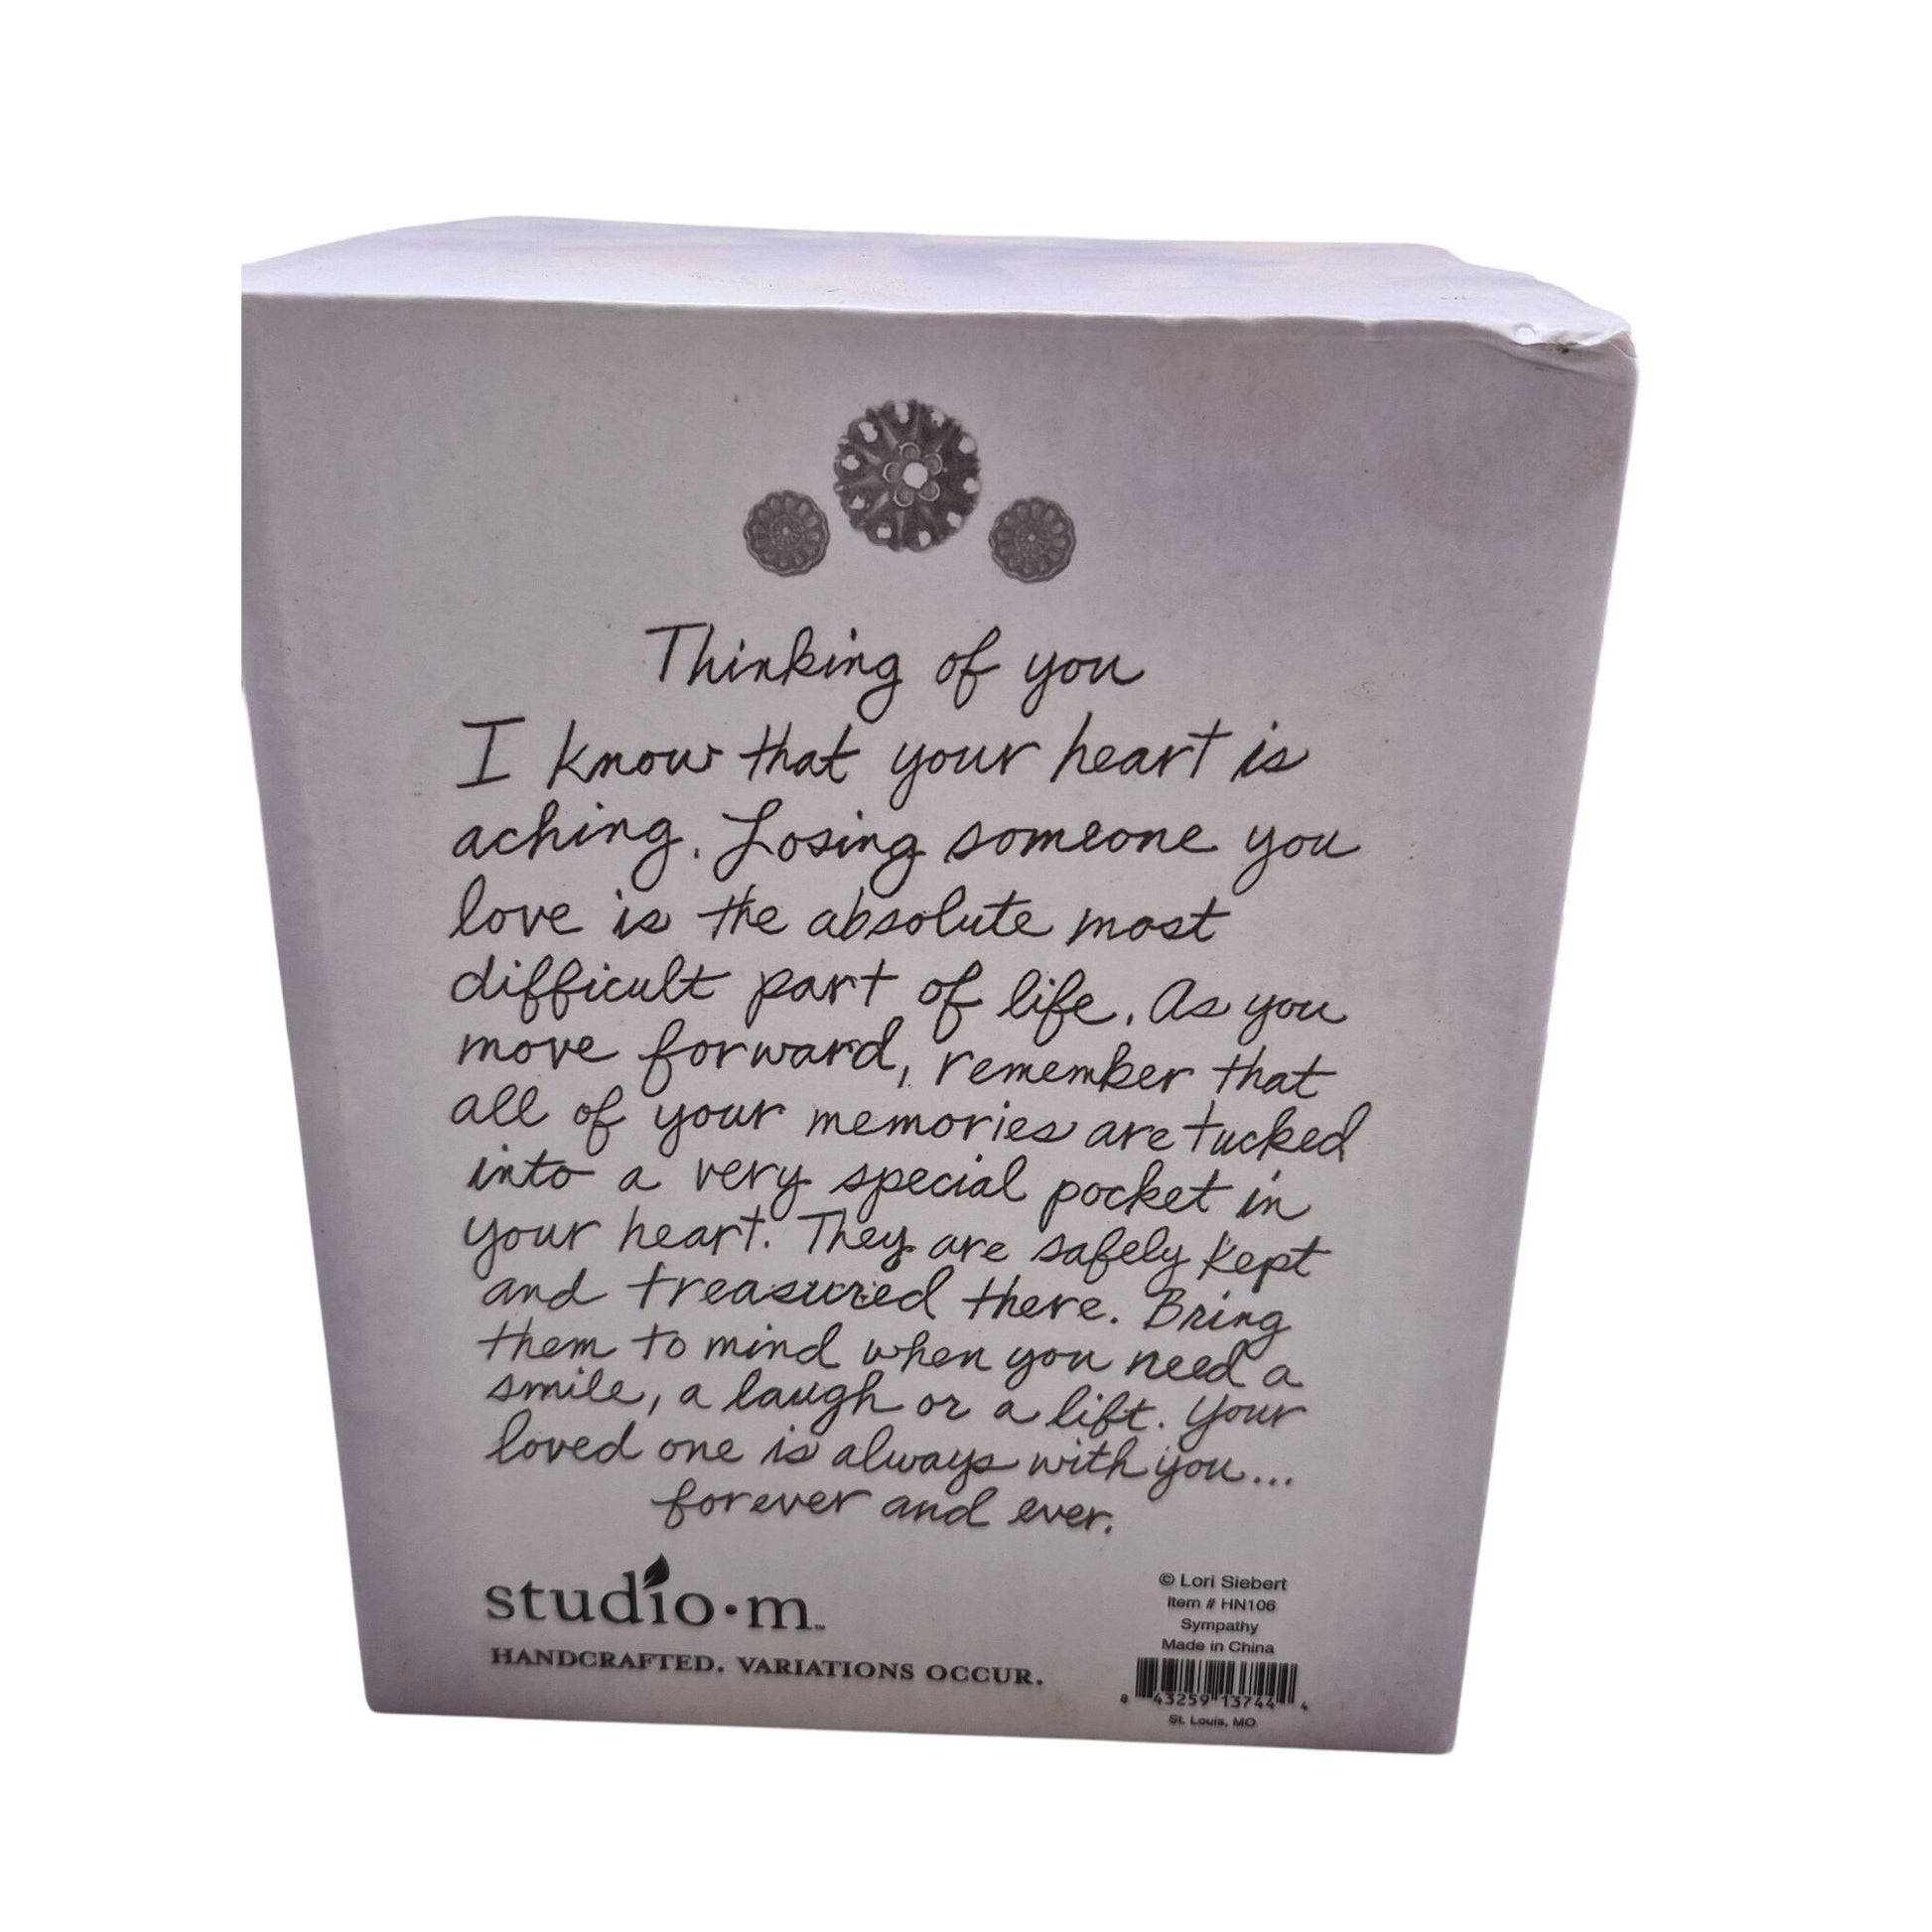 Thinking of you
I know that your heart is
aching. Losing someone you
love is the absolute most
difficult part of life. As you
move forward, remember that
all of your memories are tucked
into a very special pocket in
your heart. They are safely kept
and treasured there. Bring
them to mind when you need a
smile, a laugh or a lift. Your
loved one is always with you...
forever and ever.
studio•m™
HANDCRAFTED. VARIATIONS OCCUR.
© Lori Siebert
Item # HN106
Sympathy
Made in China
8 43259 13744 4
St. Louis, MO